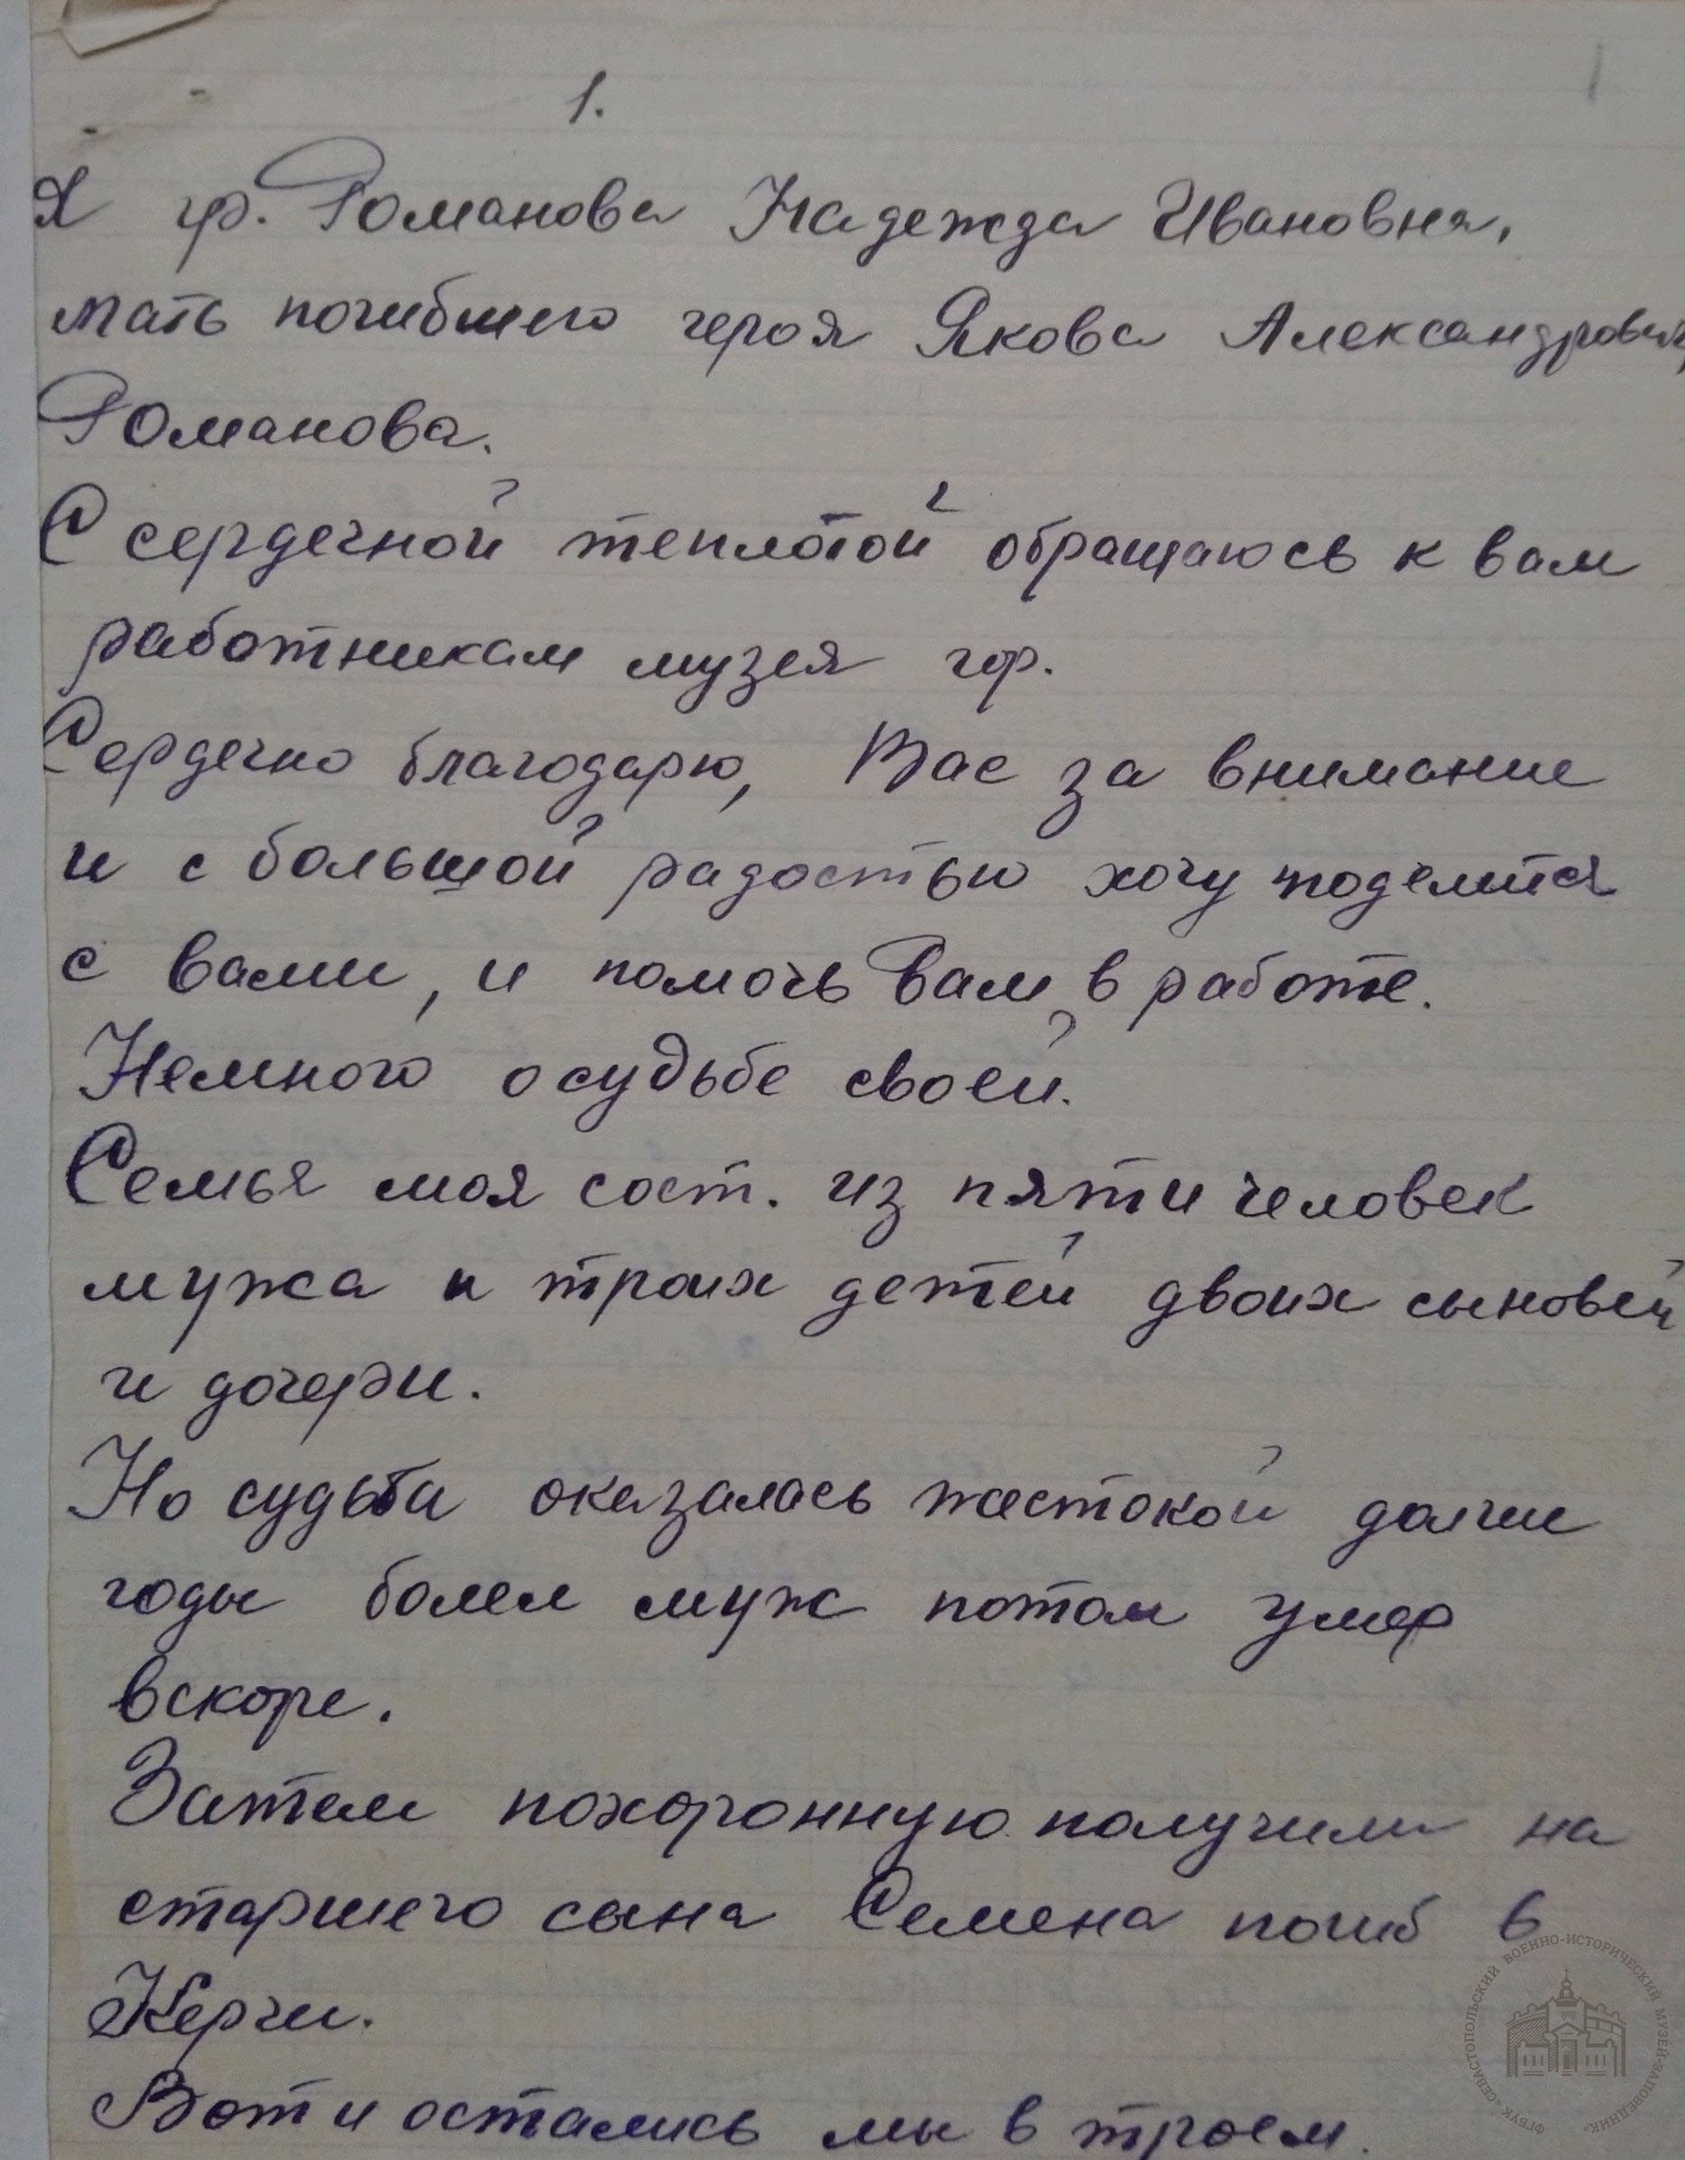 1.
Я гр. Романова Надежда Ивановна,
мать погибшего героя Якова Александрович
Романова.
С сердечной теплотой обращаюсь к вам
работникам музея гор.
Сердечно благодарю, Вас за внимание
и с большой радостью хочу поделится
с вами, и помочь Вам в работе.
Немного о судьбе своей.
Семья моя сост. из пяти человек
мужа и троих детей двоих сыновей
и дочери.
Но судьба оказалась жестокой долгие
годы болел муж потом умер
вскоре.
Затем похоронную получили на
старшего сына Семена погиб в
Керчи.
Вот и остались мы в троем.
ФГБУК «СЕВАСТОПОЛЬСКИЙ ВОЕННО-ИСТОРИЧЕСКИЙ МУЗЕЙ-ЗАПОВЕДНИК»